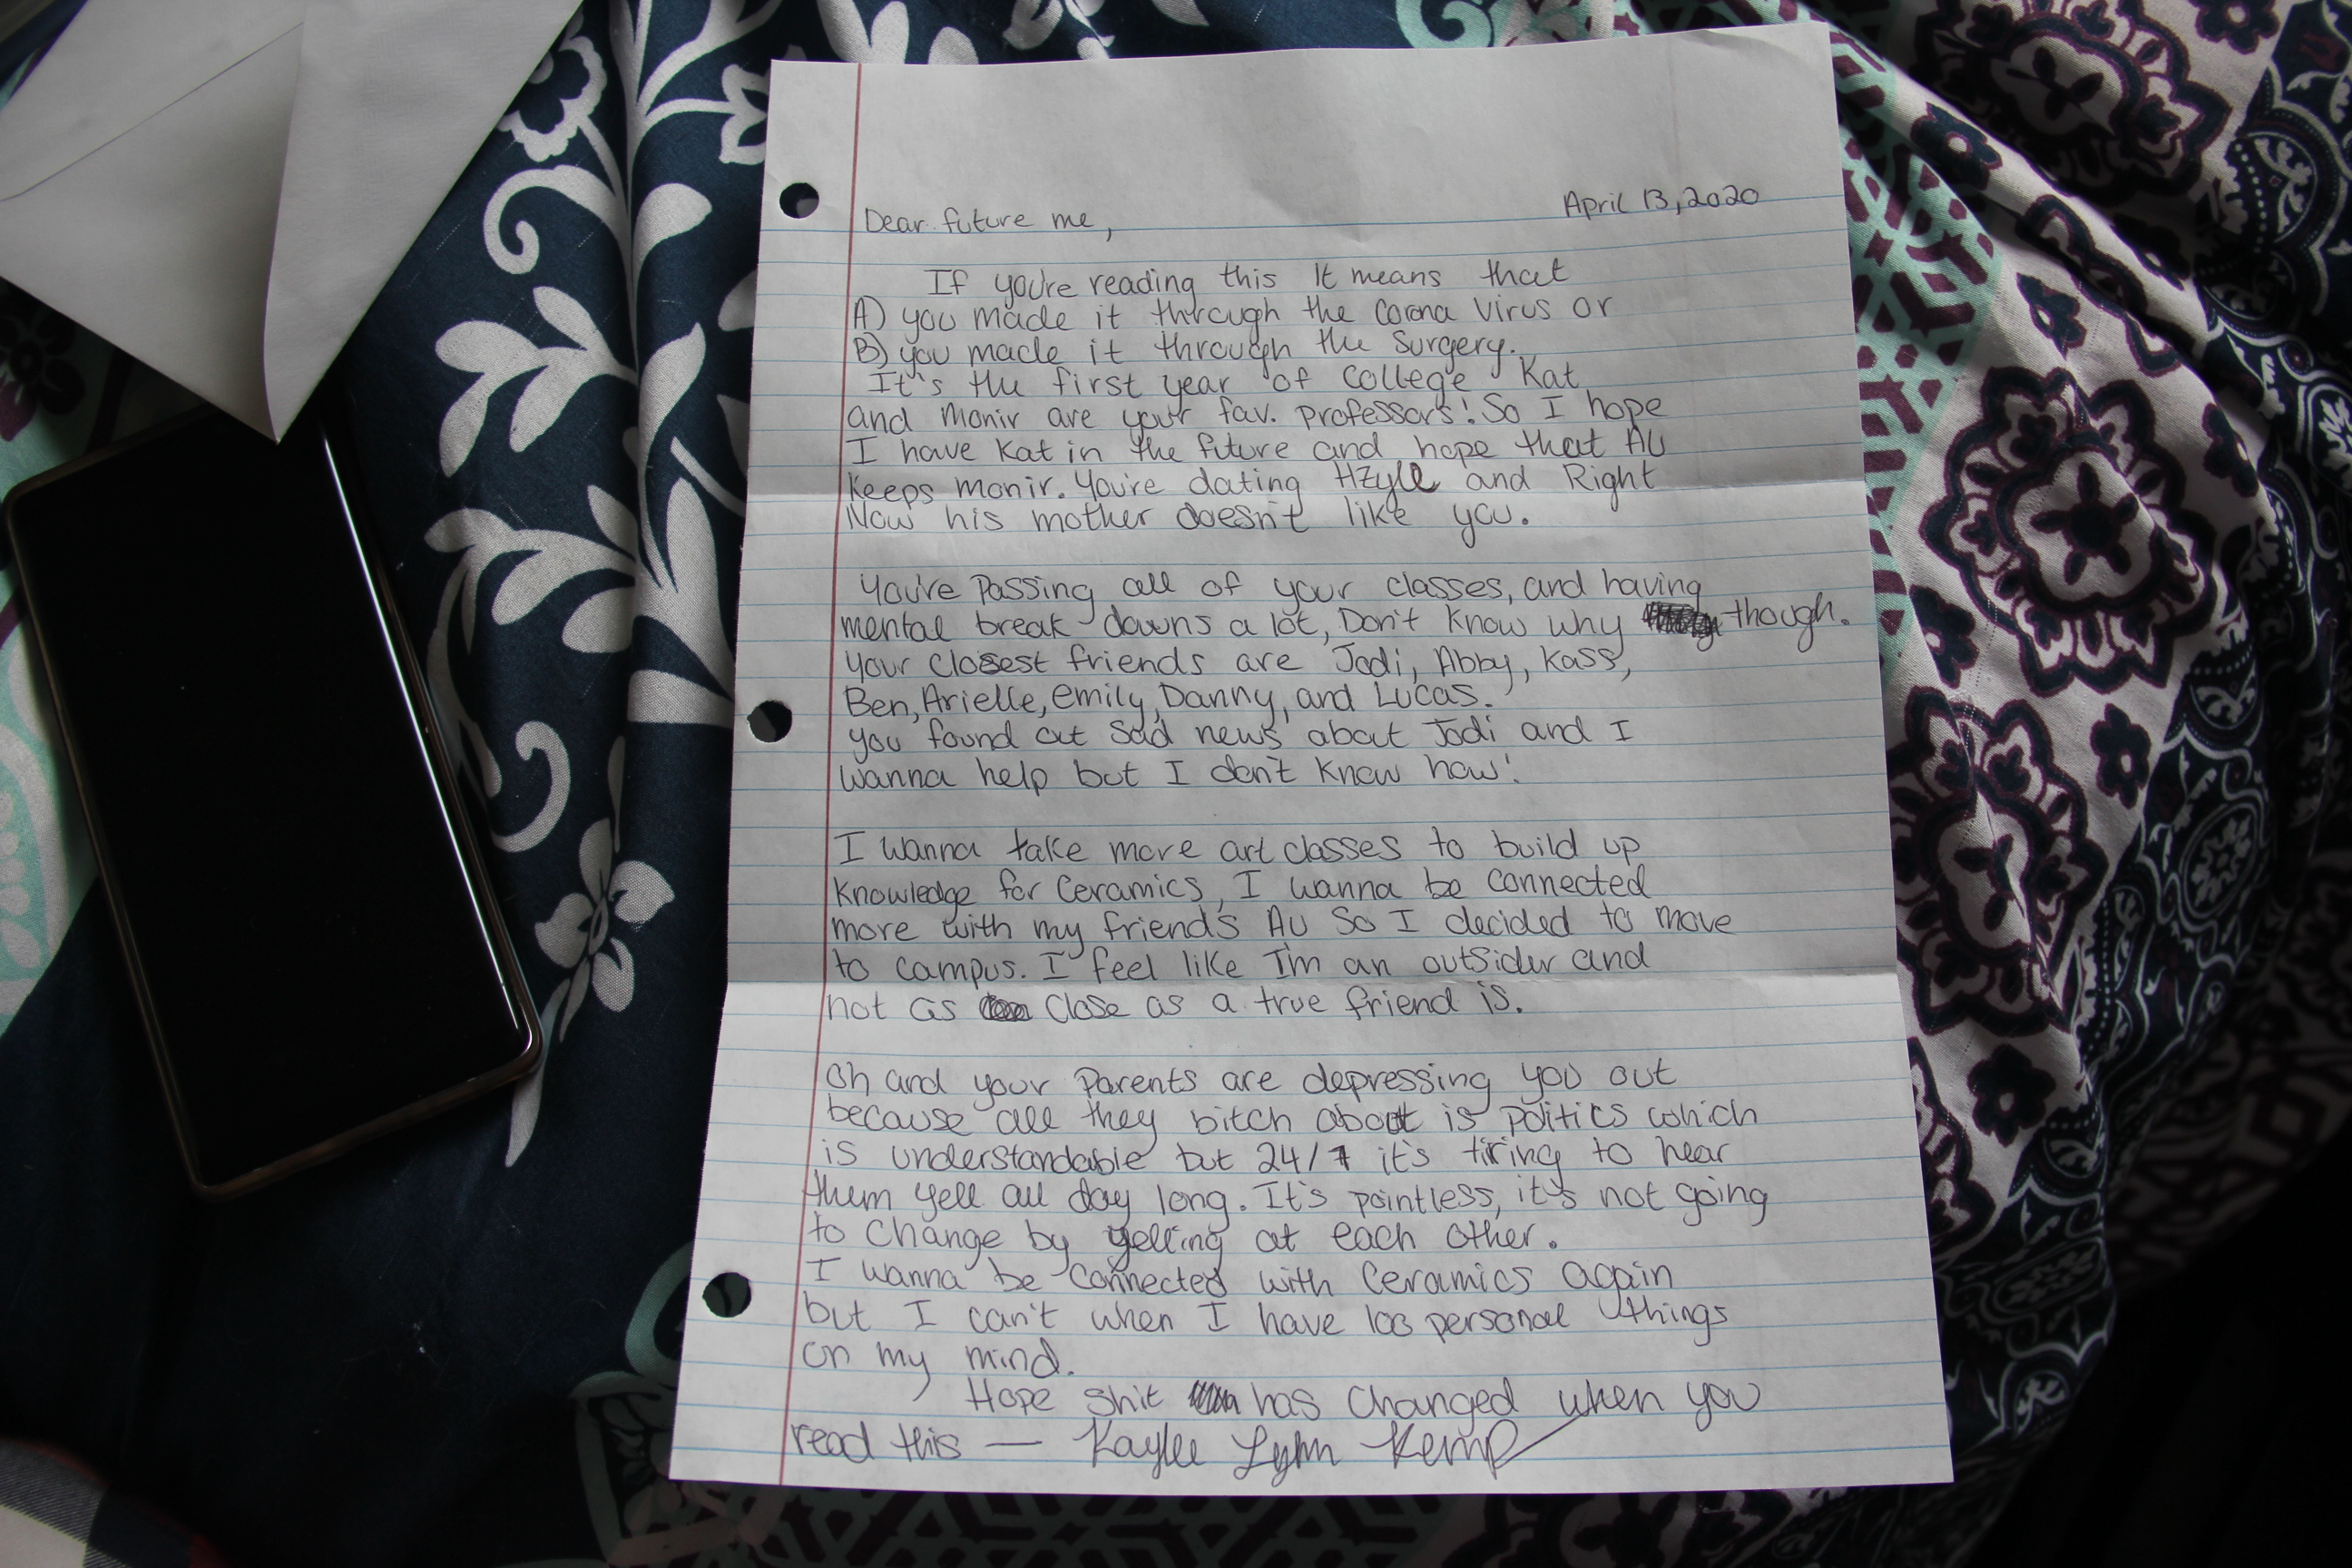 April 13, 2020
Dear future me,
If you're reading this It means that
A) you made it through the Corona Virus or
B) you made it through the Surgery.
It's the first year of College Kat
and Monir are your fav. professors! So I hope
I have Kat in the future and hope that AU
Keeps monir. You're dating and Right
Now his mother doesn't like you.
You're Passing all of your classes, and having
mental break downs a lot, Don't Know why though.
Your closest friends are Jodi, Abby, Kass,
Ben, Arielle, emily, Danny, and Lucas.
you found out Sad news about Jodi and I
wanna help but I don't know how!
I wanna take more art classes to build up
Knowledge for Ceramics, I wanna be connected
more with my friends AU So I decided to move
to campus. I feel like I'm an outsider and
not as close as a true friend is.
Oh and your Parents are depressing you out
because all they bitch about is politics which
is understandable but 24/7 it's tiring to hear
them yell all day long. It's pointless, it's not going
to change by yelling at each other.
I wanna be connected with Ceramics again
but I can't when I have 100 personal things
on my mind.
Hope shit has changed when you
read this — Kaylee Lynn Kemp